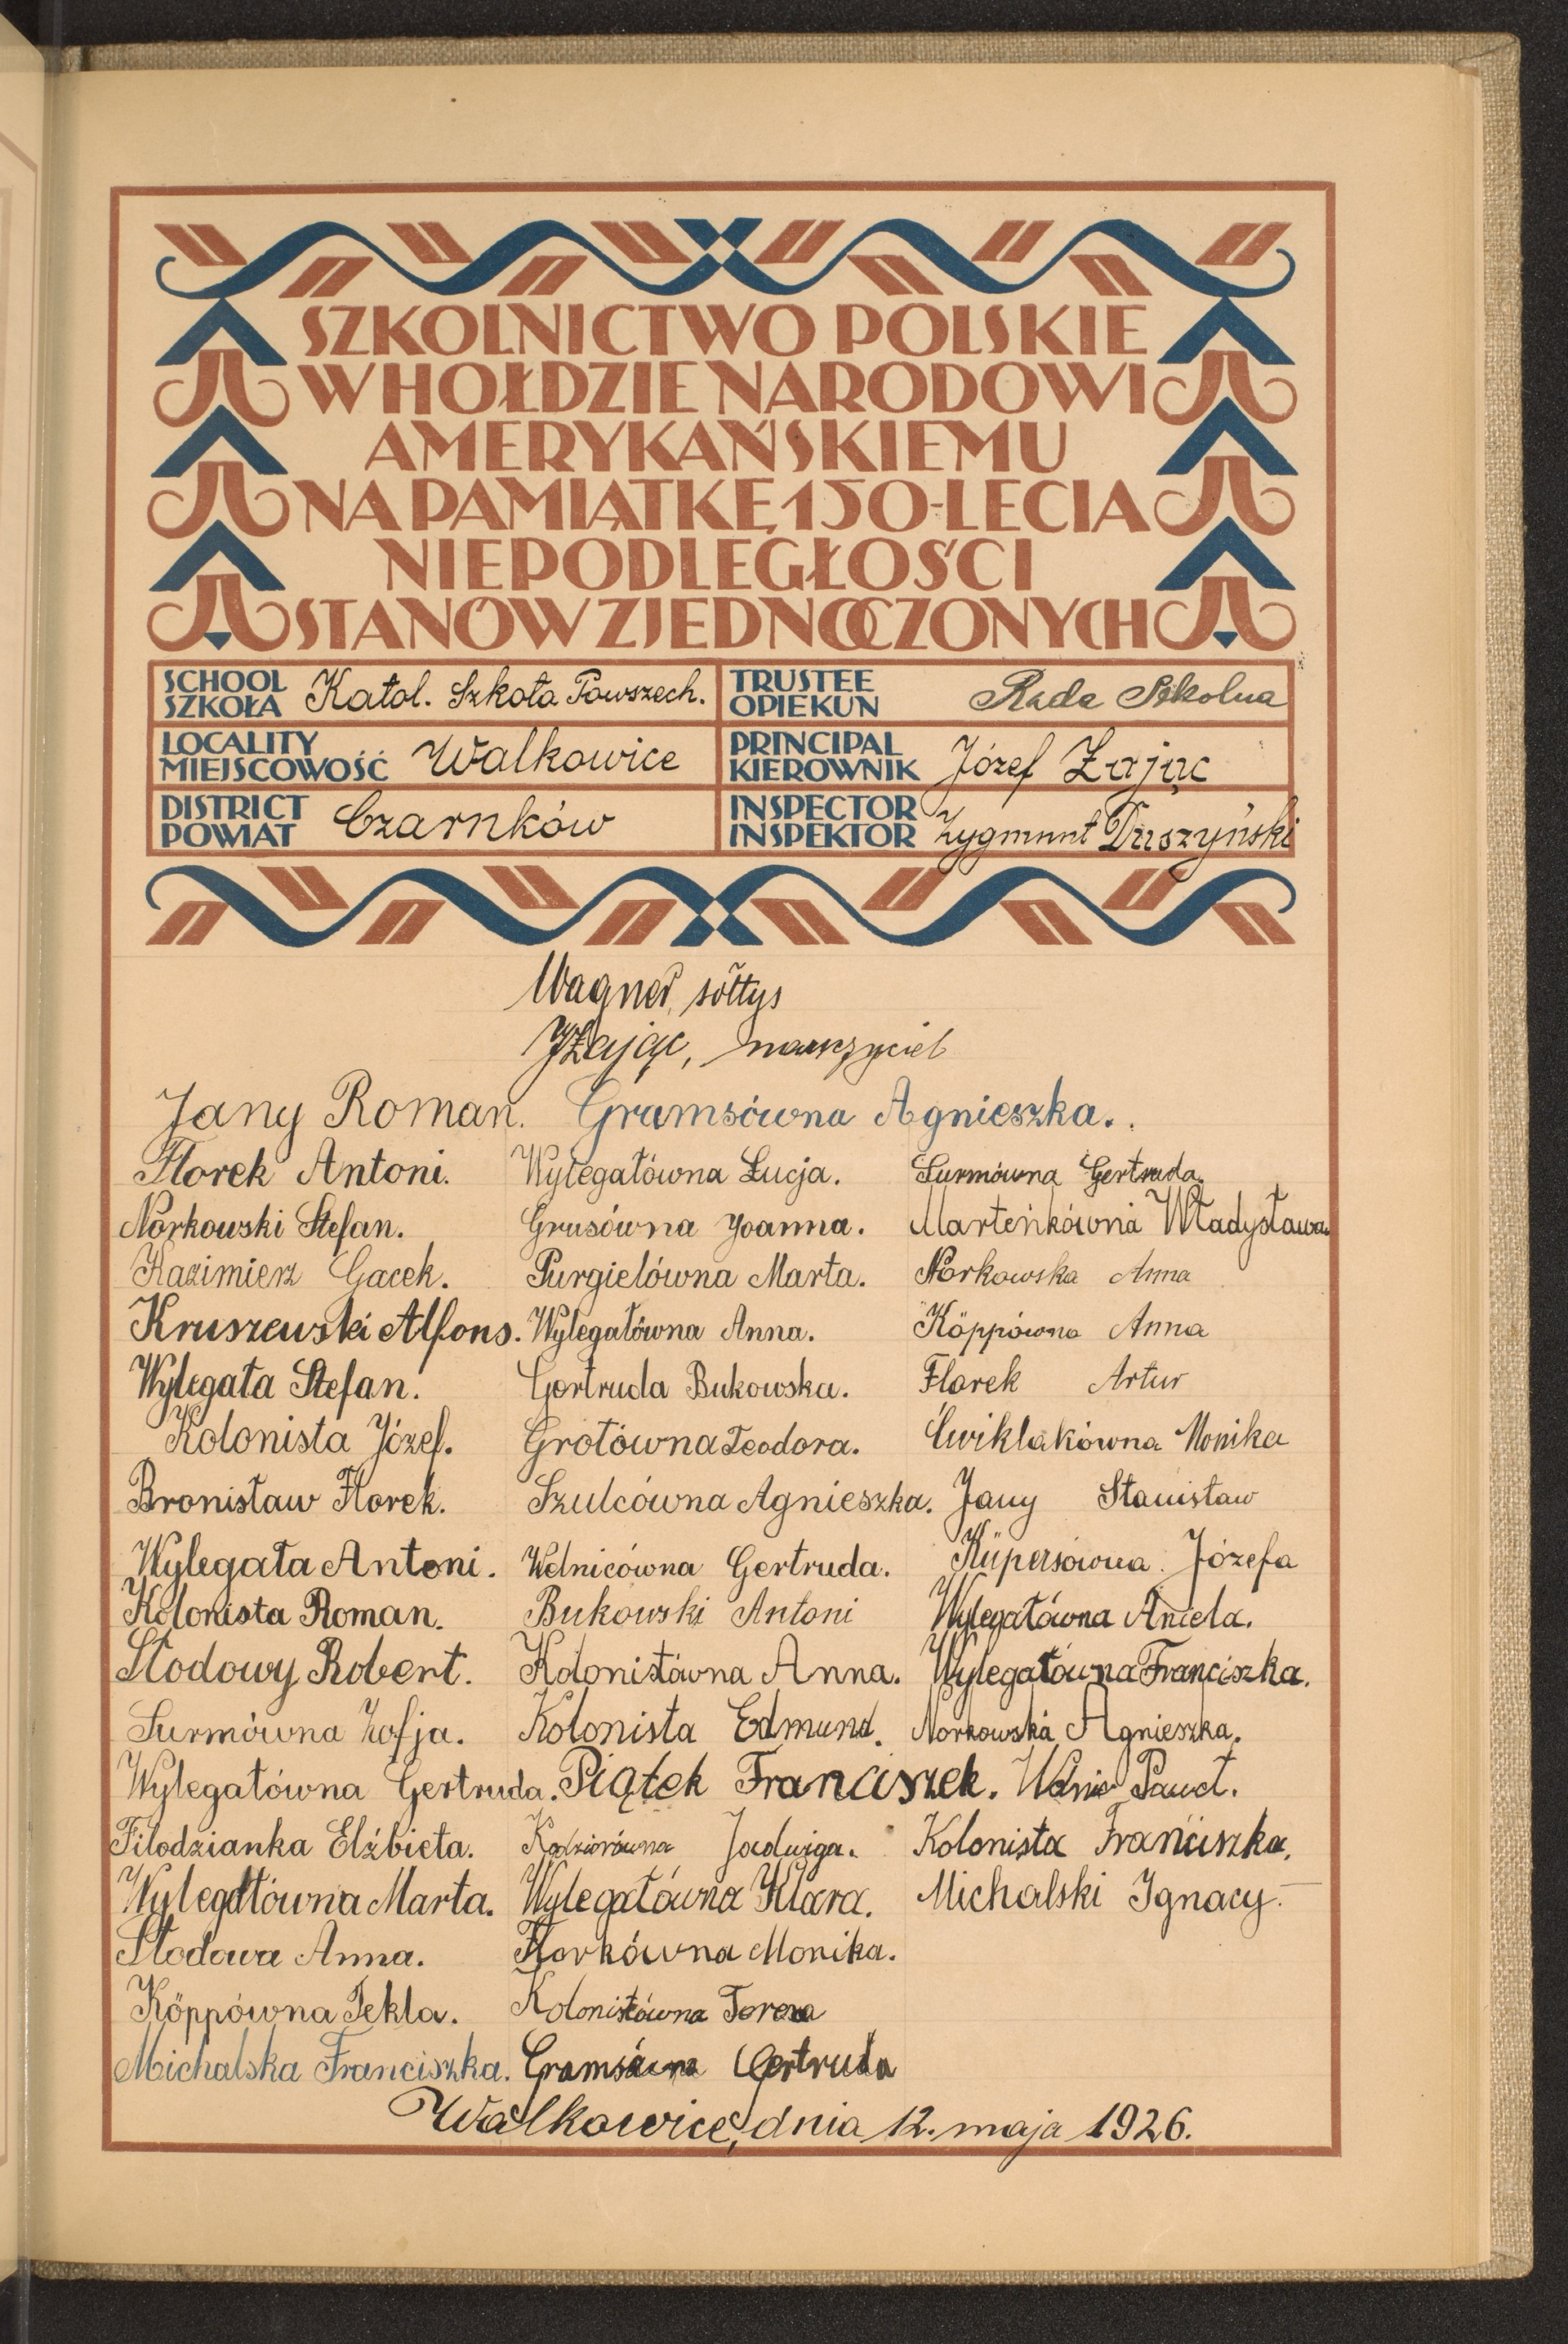 SZKOLNICTWO POLSKIE
W HOŁDZIE NARODOWI
AMERYKAŃSKIEMU
NA PAMIĄTKĘ 150-LECIA
NIEPODLEGŁOŚCI
STANÓW ZJEDNOCZONYCH
SCHOOL
SZKOŁA Katol. Szkoła Powszech.
TRUSTEE
OPIEKUN Rada Szkolna
LOCALITY
MIEJSCOWOŚĆ Walkowice
PRINCIPAL
KIEROWNIK Józef Zając
DISTRICT
POWIAT Czarnków
INSPECTOR
INSPEKTOR Zygmunt Duszyński
Wagner, sołtys
JZając, nauczyciel
Jany Roman. Gramsówna Agnieszka.
Florek Antoni. Wylegałówna Łucja. Surmówna Gertruda.
Norkowski Stefan. Grusówna Joanna. Marteńkówna Władysława.
Kazimierz Gacek. Purgielówna Marta. Norkowska Anna
Kruszewski Alfons. Wylegałówna Anna. Köppówna Anna
Wylegała Stefan. Gertruda Bukowska. Florek Artur
Kolonista Józef. Grotówna Teodora. Ćwiklakówna Monika
Bronisław Florek. Szulcówna Agnieszka. Jany Stanisław
Wylegała Antoni. Wolnicówna Gertruda. Küpersówna Józefa
Kolonista Roman. Bukowski Antoni Wylegałówna Aniela.
Słodowy Robert. Kolonistówna Anna. Wylegałówna Franciszka.
Surmówna Zofja. Kolonista Edmund. Norkowska Agnieszka.
Wylegałówna Gertruda. Piątek Franciszek. Wolnic Paweł.
Filodzianka Elżbieta. Kodziorówna Jadwiga. Kolonista Franciszka.
Wylegałówna Marta. Wylegałówna Klara. Michalski Ignacy.
Słodowa Anna. Florkówna Monika.
Köppówna Tekla. Kolonistówna Teresa
Michalska Franciszka. Gramsówna Gertruda
Walkowice, dnia 12. maja 1926.